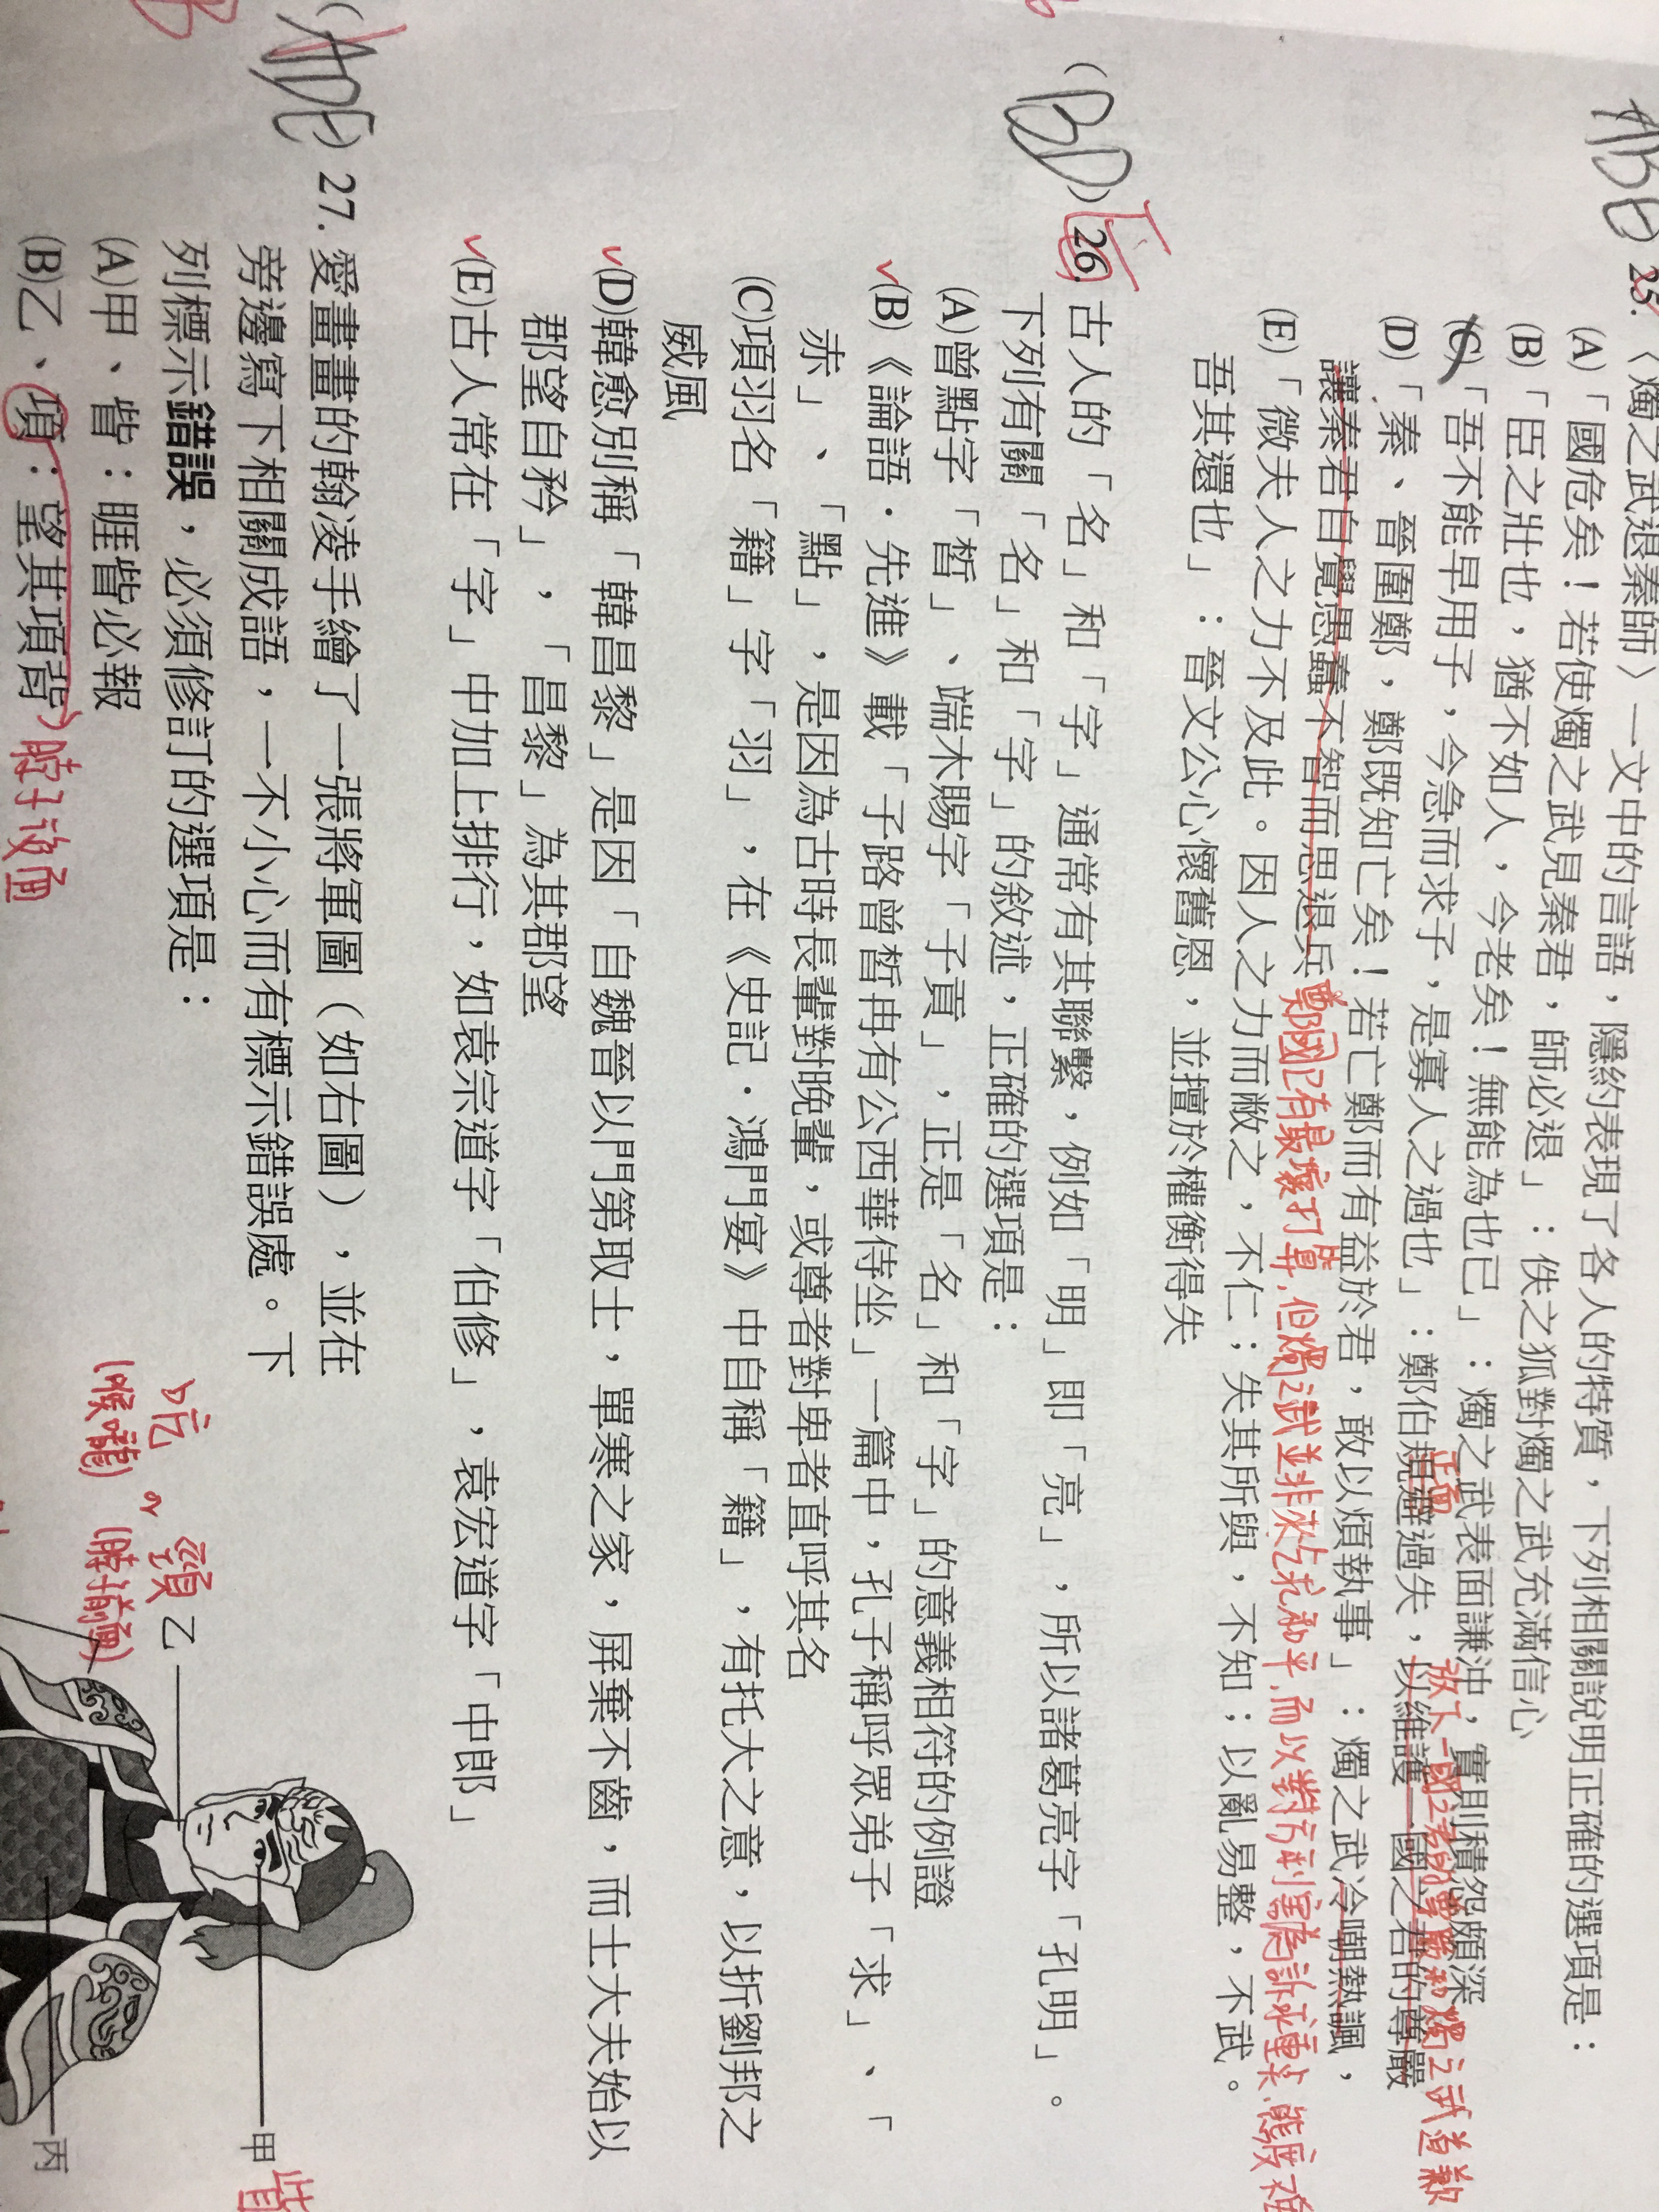 ABE) 25.〈燭之武退秦師〉一文中的言語，隱約表現了各人的特質，下列相關說明正確的選項是：
(A)「國危矣！若使燭之武見秦君，師必退」：佚之狐對燭之武充滿信心
(B)「臣之壯也，猶不如人，今老矣！無能為也已」：燭之武表面謙沖，實則積怨頗深
正面 放下一國之君的尊嚴和燭之武道歉
(C)「吾不能早用子，今急而求子，是寡人之過也」：鄭伯規避過失，以維護一國之君的尊嚴
(D)「秦、晉圍鄭，鄭既知亡矣！若亡鄭而有益於君，敢以煩執事」：燭之武冷嘲熱諷，
讓秦君自覺愚蠢不智而思退兵
鄭國已有最壞打算，但燭之武並非求乞求和平，而以對方利害為訴求重點，態度不
(E)「微夫人之力不及此。因人之力而敝之，不仁；失其所與，不知；以亂易整，不武。
吾其還也」：晉文公心懷舊恩，並擅於權衡得失
(BD) E 26. 古人的「名」和「字」通常有其聯繫，例如「明」即「亮」，所以諸葛亮字「孔明」。
下列有關「名」和「字」的敘述，正確的選項是：
(A)曾點字「皙」、端木賜字「子貢」，正是「名」和「字」的意義相符的例證
(B)《論語．先進》載「子路曾皙冉有公西華侍坐」一篇中，孔子稱呼眾弟子「求」、「
赤」、「點」，是因為古時長輩對晚輩，或尊者對卑者直呼其名
(C)項羽名「籍」字「羽」，在《史記．鴻門宴》中自稱「籍」，有托大之意，以折劉邦之
威風
(D)韓愈別稱「韓昌黎」是因「自魏晉以門第取士，單寒之家，屏棄不齒，而士大夫始以
郡望自矜」，「昌黎」為其郡望
(E)古人常在「字」中加上排行，如袁宗道字「伯修」，袁宏道字「中郎」
(ADE) 27. 愛畫畫的翰凌手繪了一張將軍圖（如右圖），並在
旁邊寫下相關成語，一不小心而有標示錯誤處。下
列標示錯誤，必須修訂的選項是：
(A)甲、眥：睚眥必報
(B)乙、項：望其項背
脖子後面
吭 or 頸
(喉嚨) (脖前面)
乙
甲
眥
丙